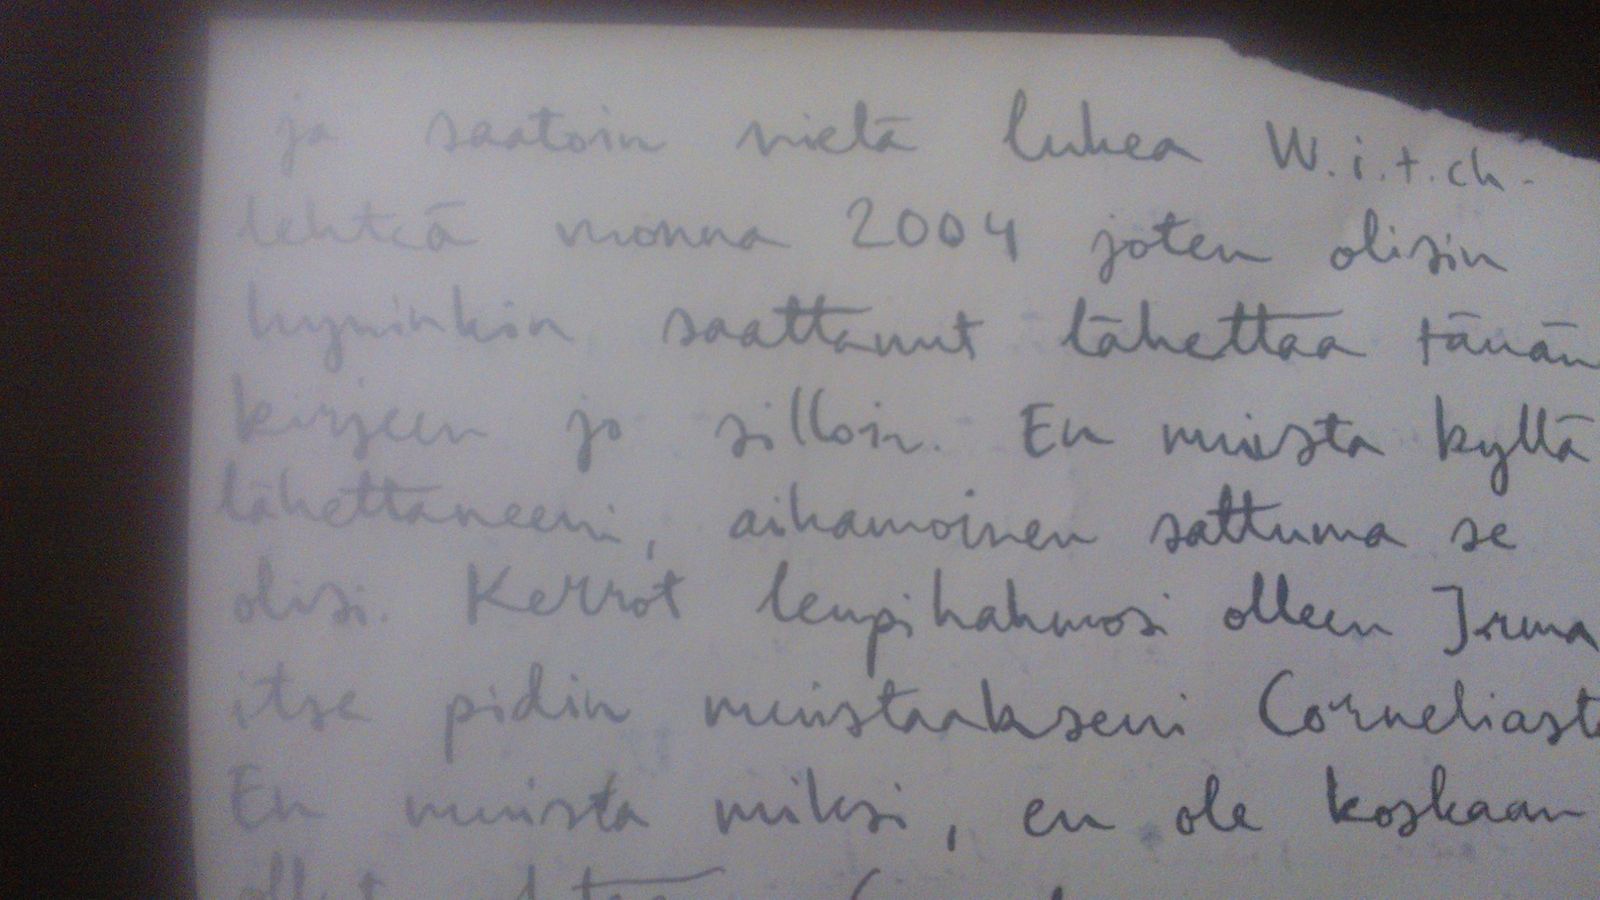 ja saatoin vielä lukea W.i.t.ch.
lehteä vuonna 2004 joten olisin
hyvinkin saattanut lähettää tämän
kirjeen jo silloin. En muista kyllä
lähettäneeni, aikamoinen sattuma se
olisi. Kerrot lempihahmosi olleen Irma
itse pidin muistaakseni Corneliasta
En muista miksi, en ole koskaan
ollut